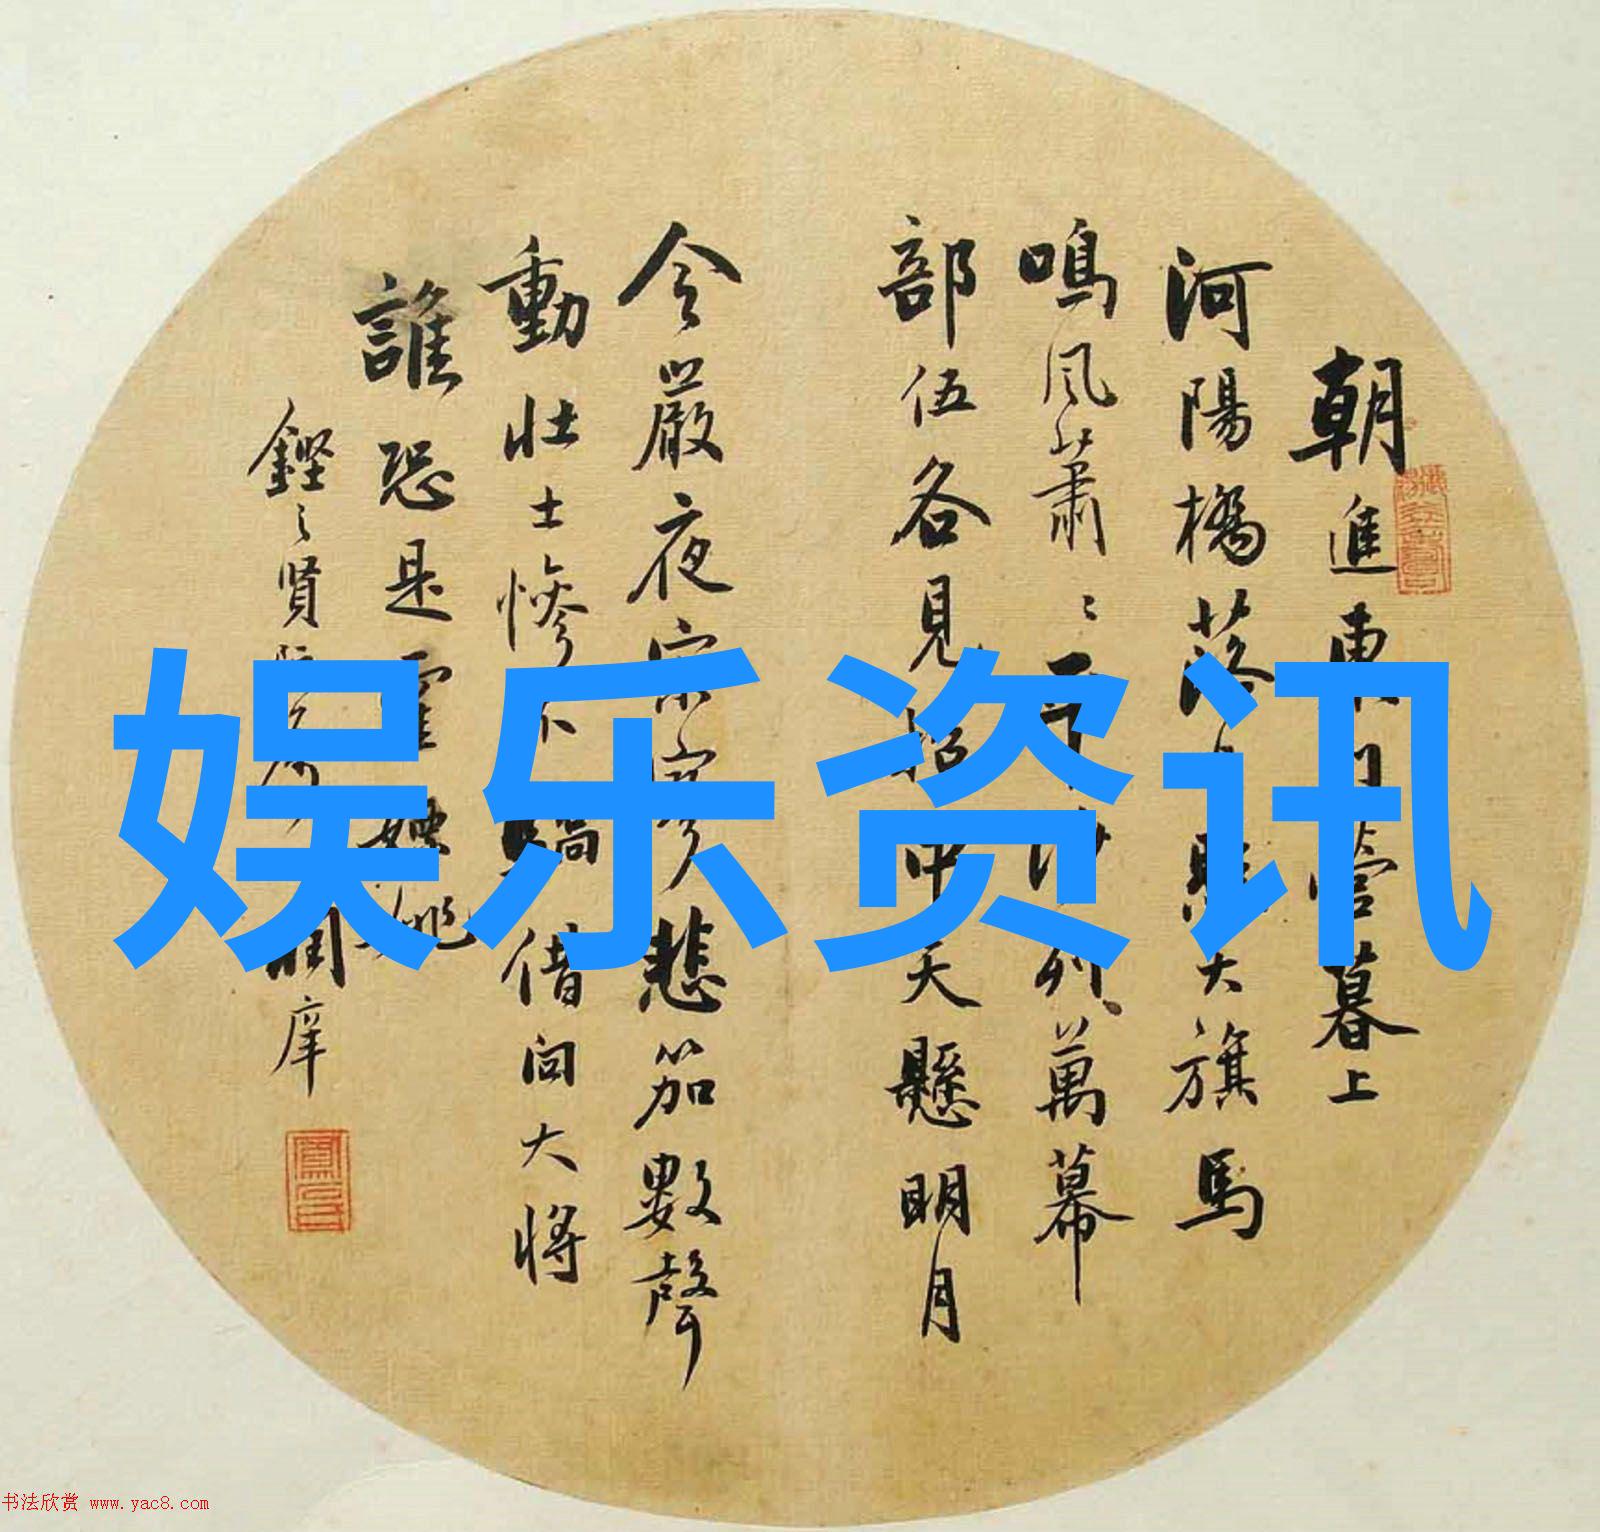 朝進東門營暮上
河陽橋落日照大旗馬
鳴風蕭〻平沙列萬幕
部伍各見招中天懸明月
令嚴夜寂寥悲笳數聲
動壯士慘不驕借问大將
誰恐是霍嫖姚
鏗之賢 潤庠
娱乐资讯
书法欣赏 www.yac8.com